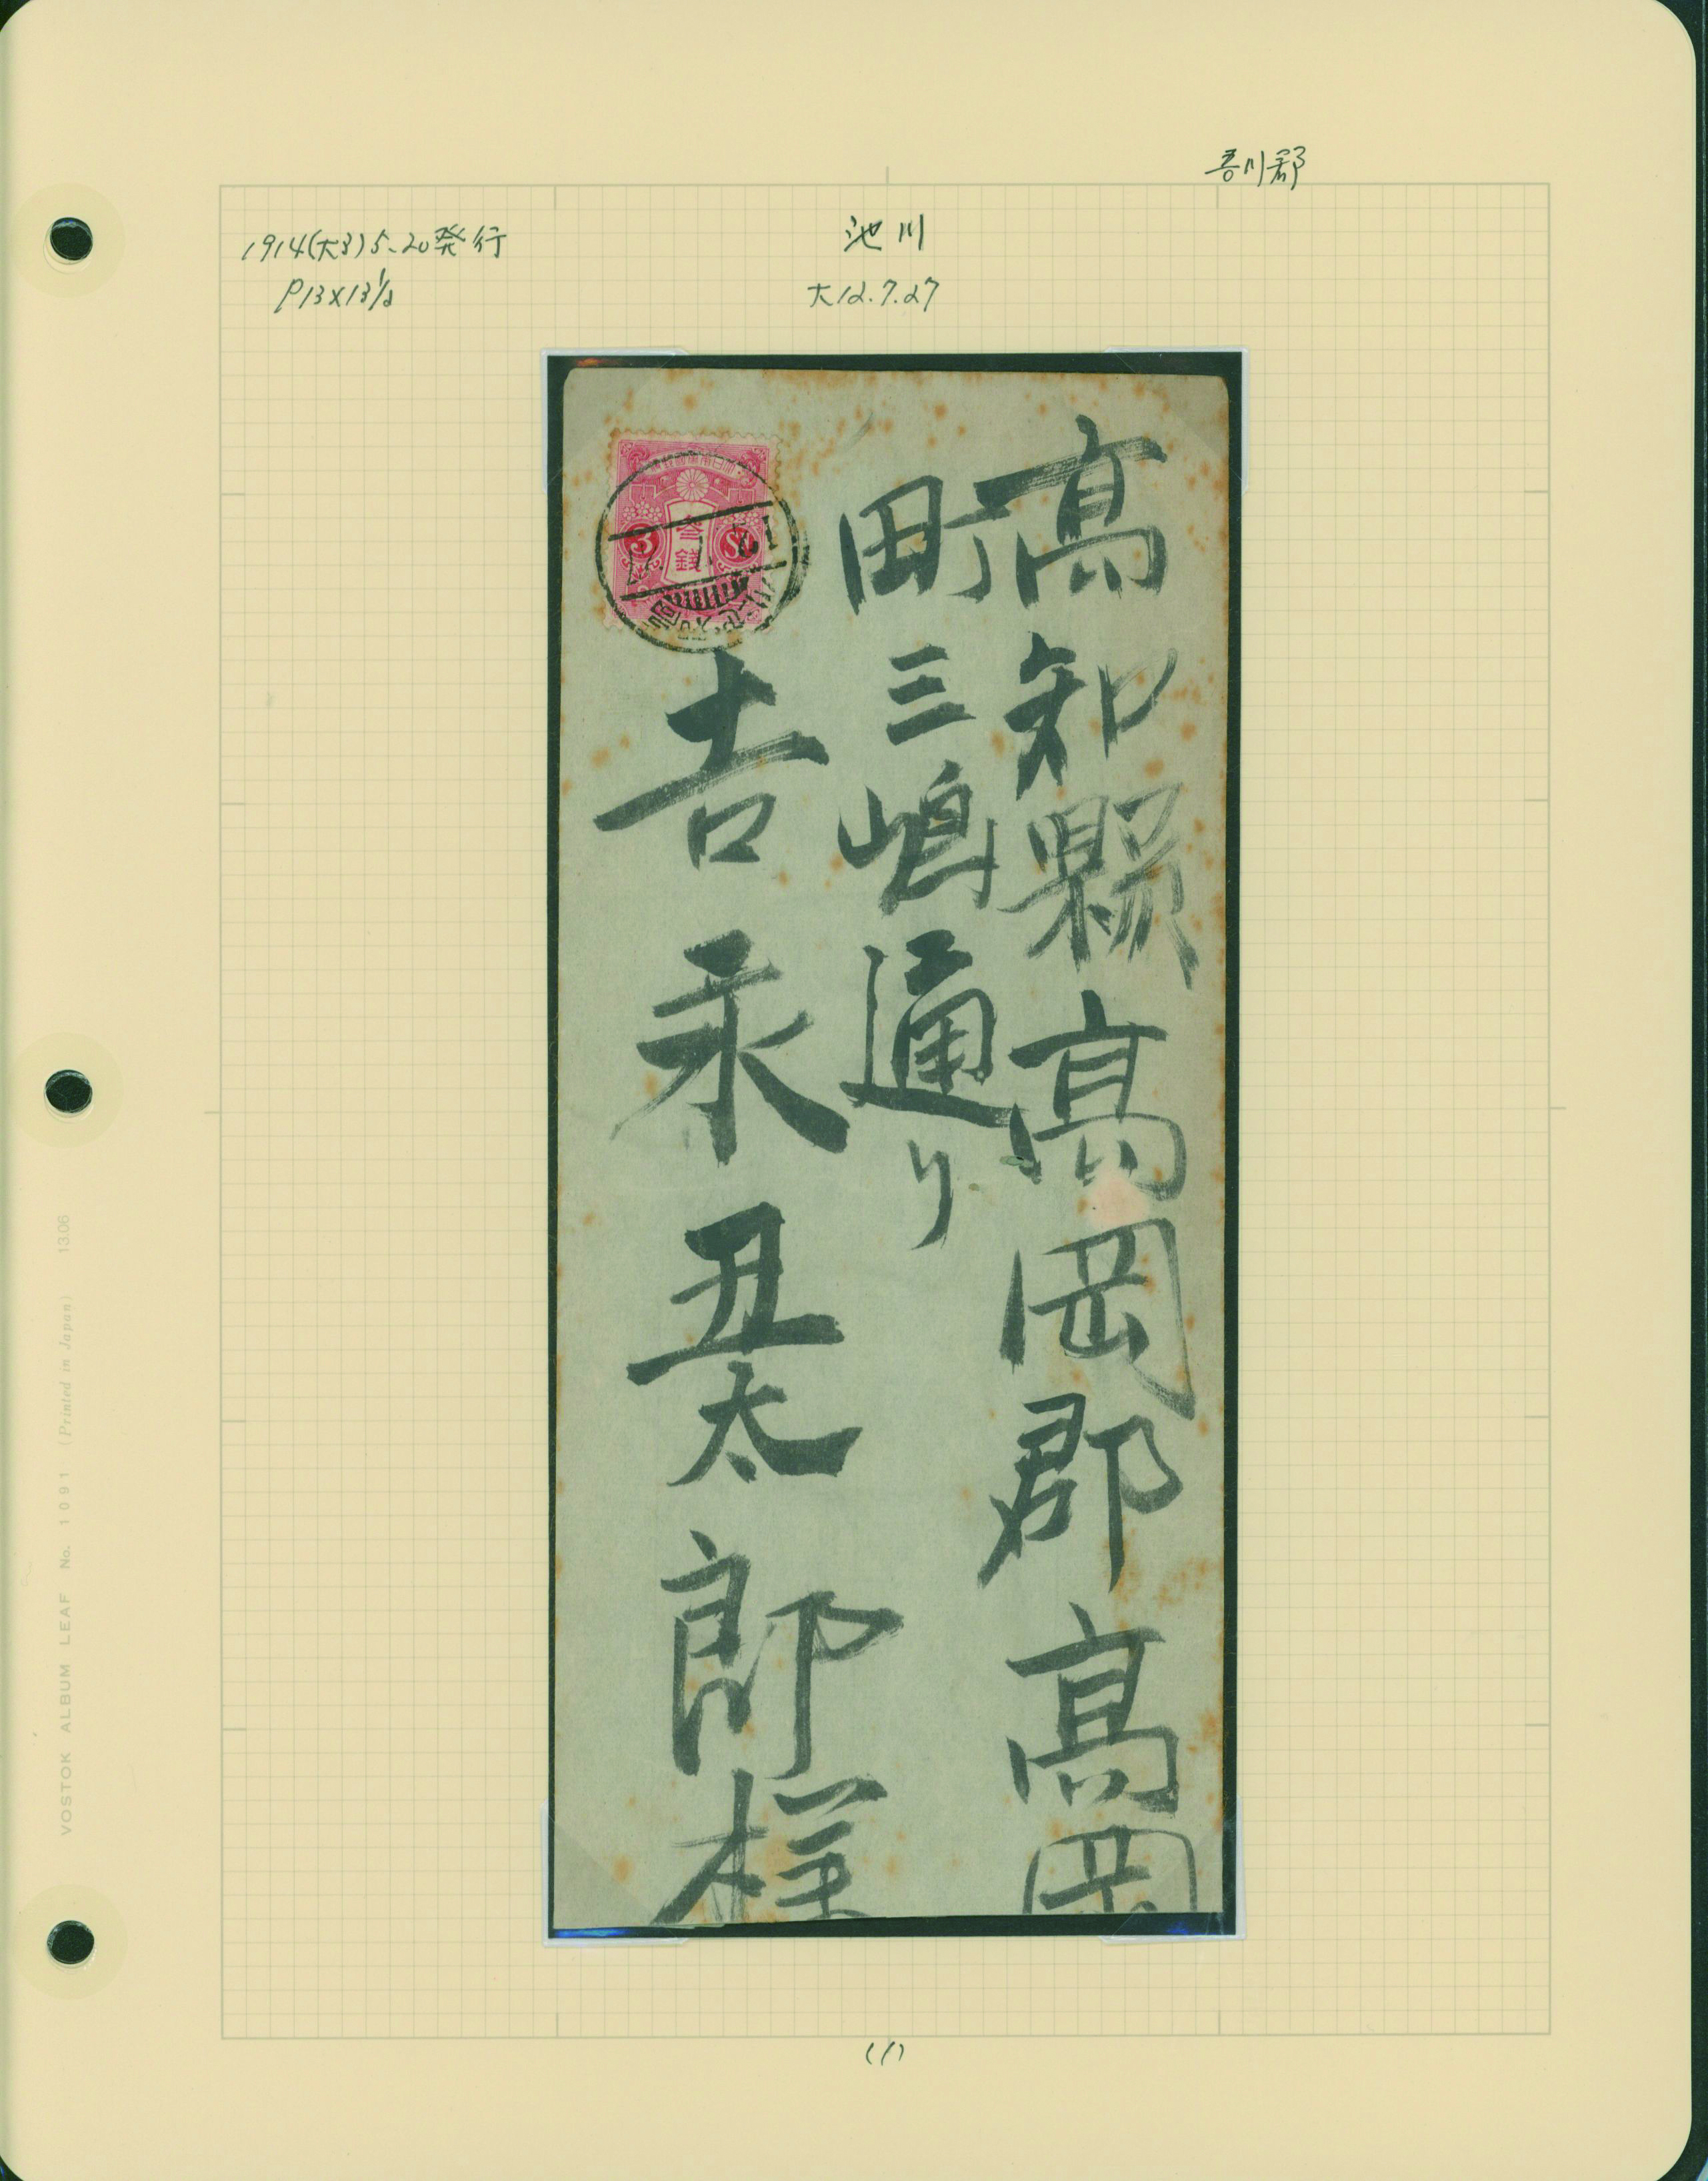 吾川郡
1914(大3)5.20発行
P13×13½
池川
大12.7.27
高知縣高岡郡高岡
町三嶋通り
吉永丑太郎様
3
参銭
Sn
高知・池川
VOSTOK ALBUM LEAF No. 1091 (Printed in Japan) 13.06
(1)